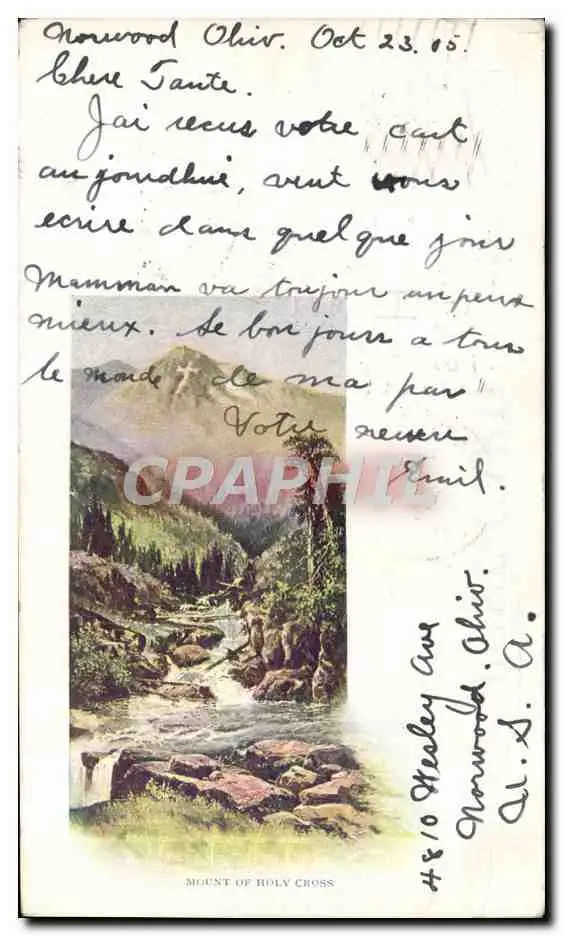 Norwood Ohio. Oct 23. 05.
Chere Tante.
J'ai recus votre cart
au jourdhui, veut vous
ecrire dans quelque jour
Mamman va toujour un peux
mieux. Le bon jours a tous
le monde de ma par
Votre neveu
Emil.
CPAPHIL
4810 Wesley Ave
Norwood. Ohio.
U. S. A.
MOUNT OF HOLY CROSS